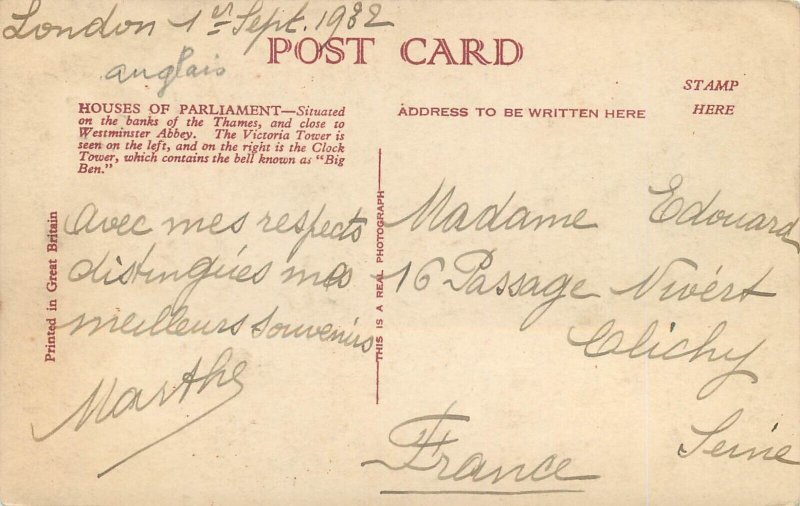 London 1er Sept. 1932
POST CARD
anglais
HOUSES OF PARLIAMENT—Situated
on the banks of the Thames, and close to
Westminster Abbey. The Victoria Tower is
seen on the left, and on the right is the Clock
Tower, which contains the bell known as "Big
Ben."
ADDRESS TO BE WRITTEN HERE
STAMP
HERE
Printed in Great Britain
avec mes respects
distinguées mes
meilleurs souvenirs
Marthe
THIS IS A REAL PHOTOGRAPH
Madame Edouard
16 Passage Nivért
Clichy
Seine
France